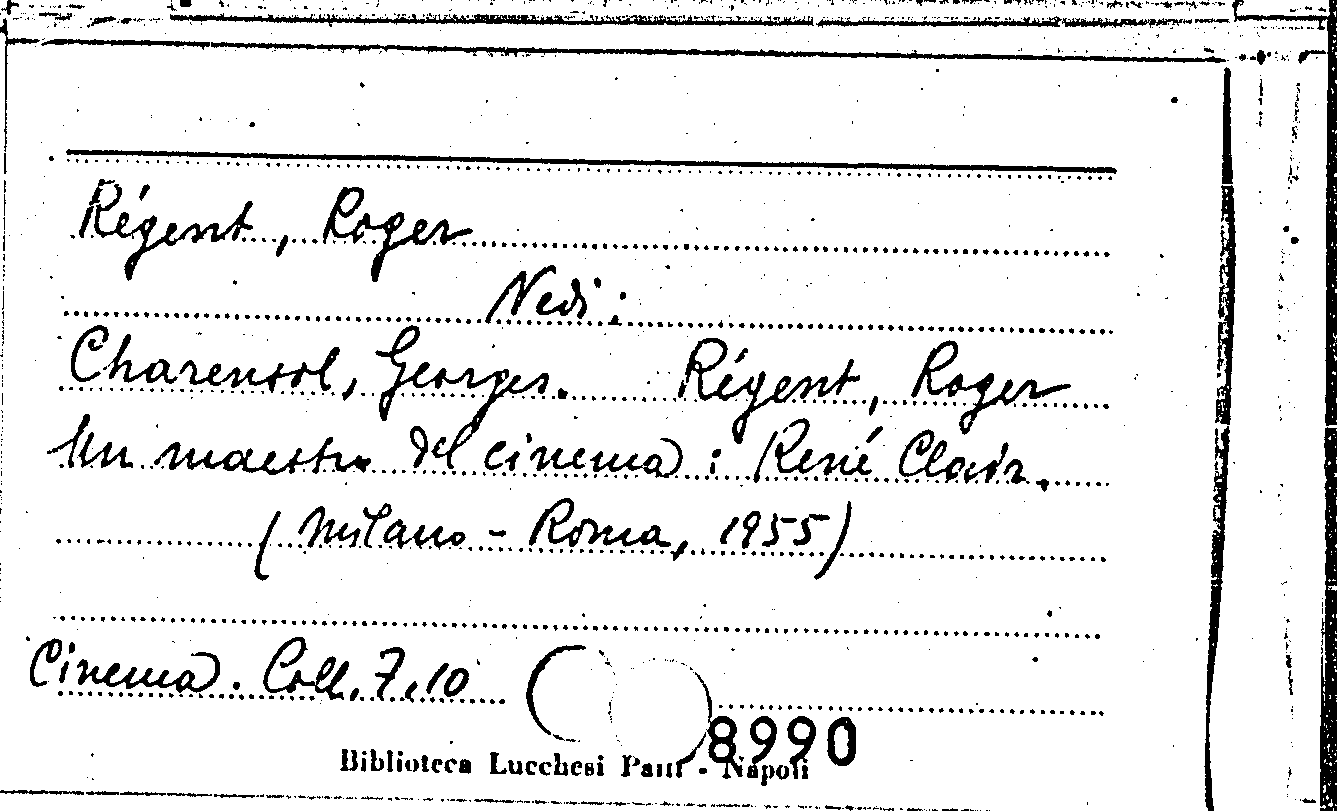 Régent, Roger
Vedi:
Charensol, Georges. Régent, Roger
Un maestro del cinema: René Clair.
(Milano - Roma, 1955)
Cinema. Coll. 7.10
8990
Biblioteca Lucchesi Palli - Napoli